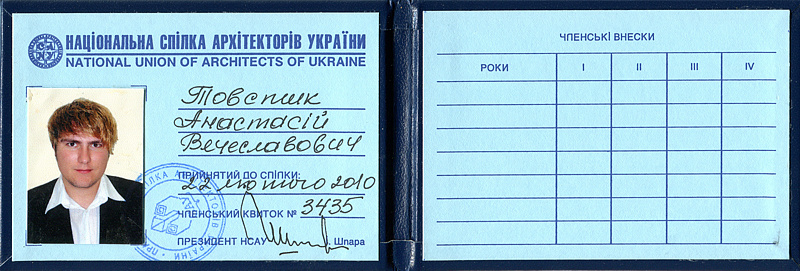 НАЦІОНАЛЬНА СПІЛКА АРХІТЕКТОРІВ УКРАЇНИ
NATIONAL UNION OF ARCHITECTS OF UKRAINE
Товстик
Анастасій
Вечеславович
ПРИЙНЯТИЙ ДО СПІЛКИ:
22 лютого 2010
ЧЛЕНСЬКИЙ КВИТОК № 3435
ПРЕЗИДЕНТ НСАУ І. Шпара
ЧЛЕНСЬКІ ВНЕСКИ
РОКИ I II III IV